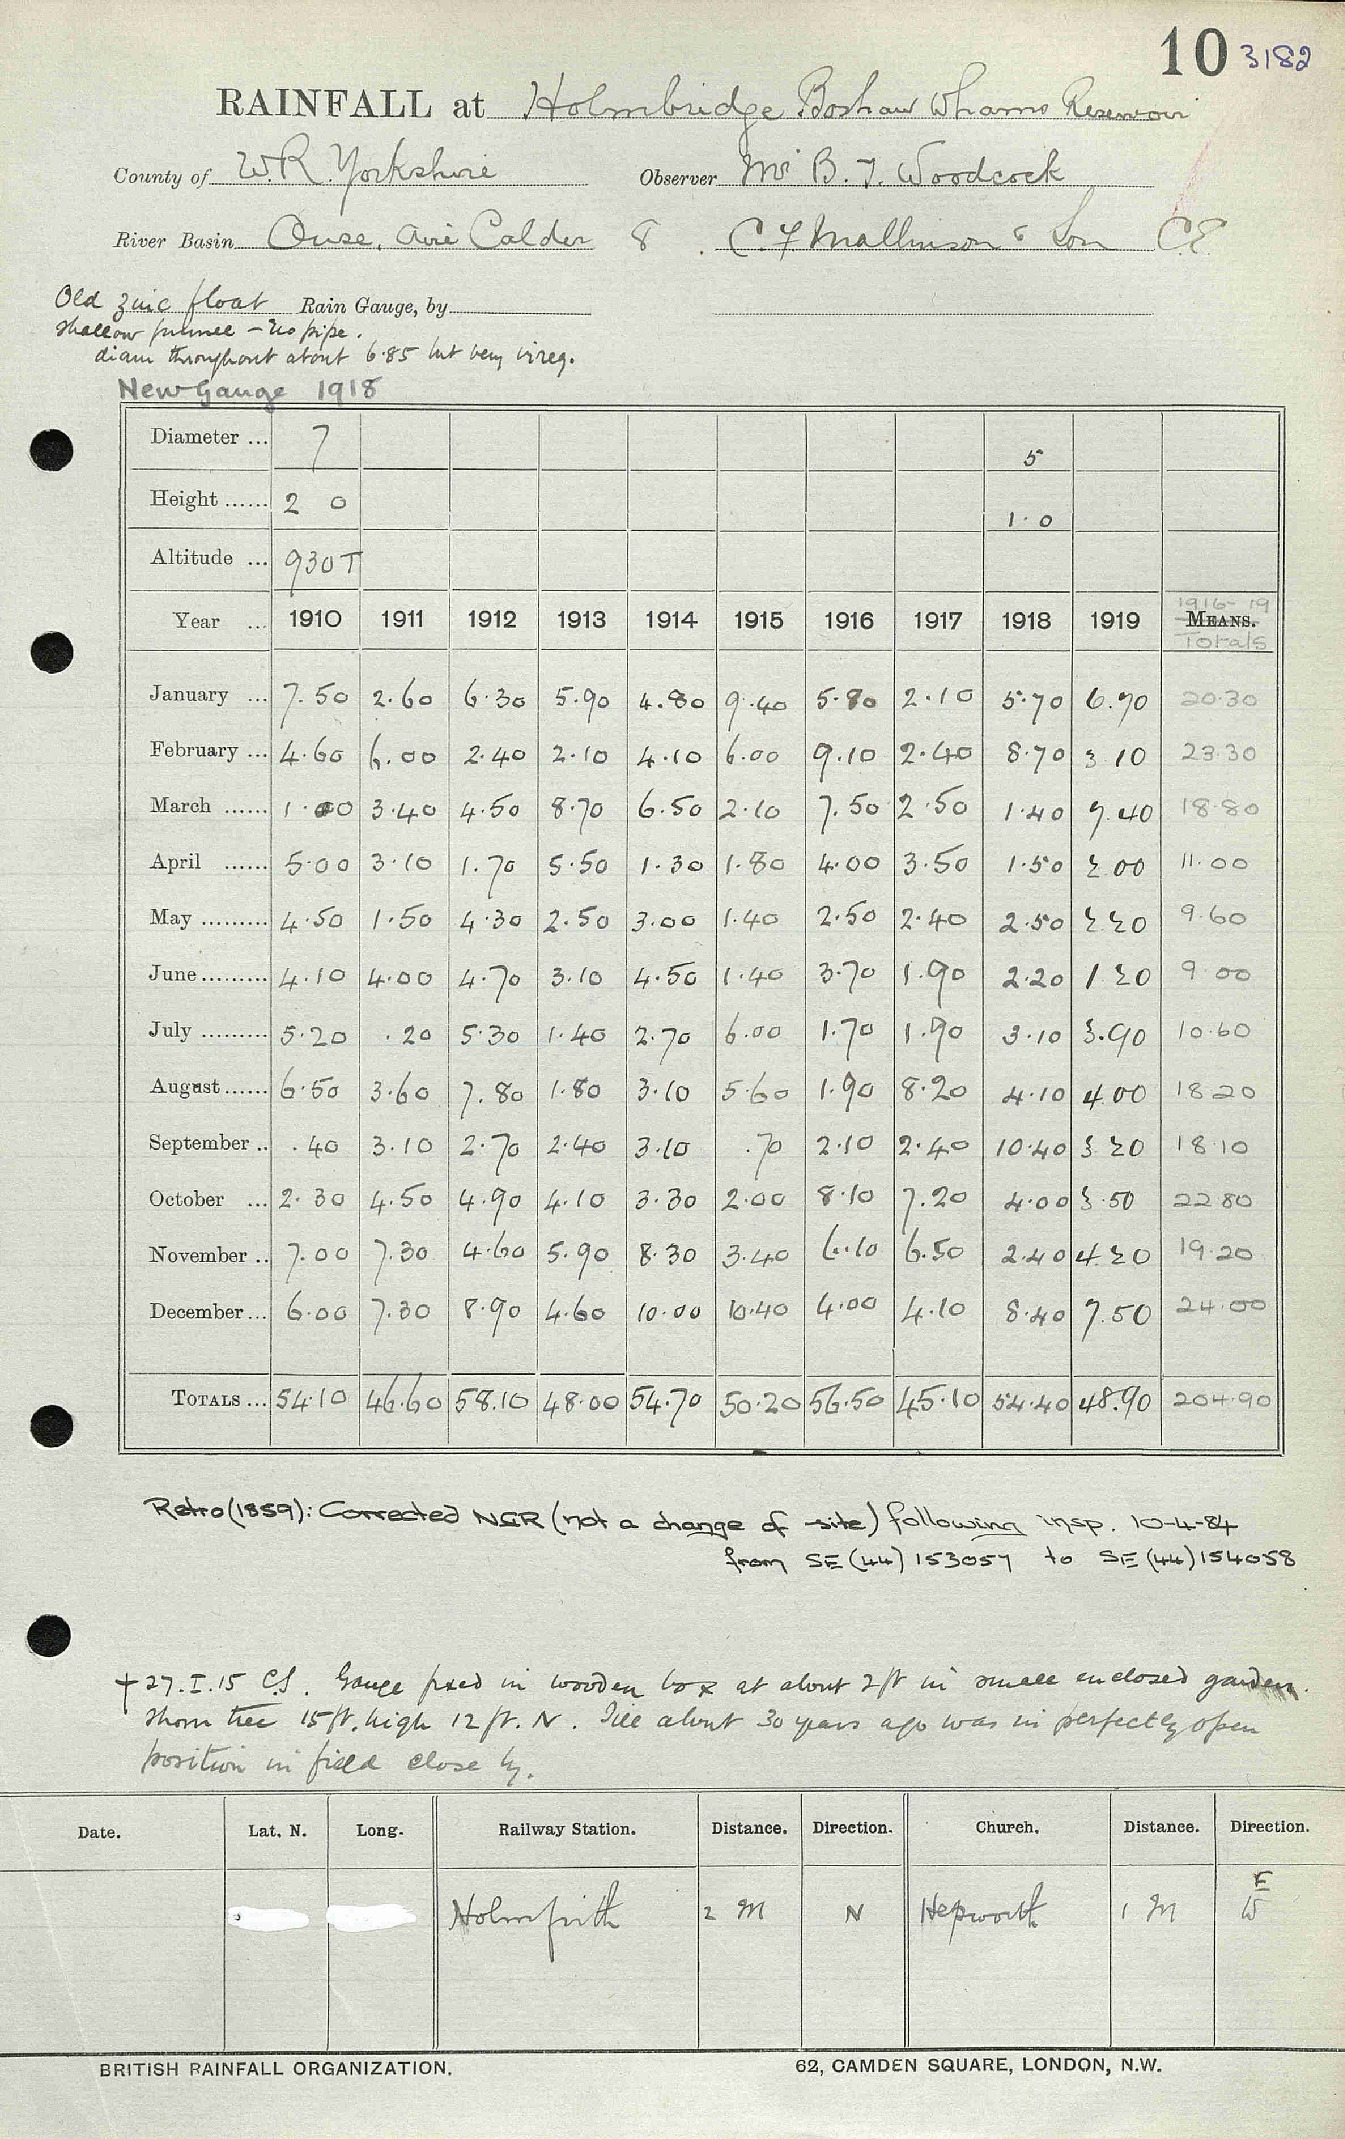 10 3182
RAINFALL at Holmbridge Boshaw Whams Reservoir
County of W.R. Yorkshire Observer Mr B. T. Woodcock
River Basin Ouse, Aire Calder 8 C. F Mallinson & Son C.E
Old zinc float Rain Gauge, by
shallow funnel - no pipe.
diam throughout about 6.85 but very irreg.
New Gauge 1918
Diameter ... 7 5
Height ...... 2 0 1.0
Altitude ... 930 T
1916-19
Year ... 1910 1911 1912 1913 1914 1915 1916 1917 1918 1919 MEANS.
Totals
January ... 7.50 2.60 6.30 5.90 4.80 9.40 5.80 2.10 5.70 6.70 20.30
February ... 4.60 6.00 2.40 2.10 4.10 6.00 9.10 2.40 8.70 3 10 23.30
March ...... 1.00 3.40 4.50 8.70 6.50 2.10 7.50 2.50 1.40 7.40 18.80
April ...... 5.00 3.10 1.70 5.50 1.30 1.80 4.00 3.50 1.50 2 00 11.00
May ......... 4.50 1.50 4.30 2.50 3.00 1.40 2.50 2.40 2.50 2 20 9.60
June ......... 4.10 4.00 4.70 3.10 4.50 1.40 3.70 1.90 2.20 1 20 9.00
July ......... 5.20 .20 5.30 1.40 2.70 6.00 1.70 1.90 3.10 3.90 10.60
August ...... 6.50 3.60 7.80 1.80 3.10 5.60 1.90 8.20 4.10 4.00 18 20
September .. .40 3.10 2.70 2.40 3.10 .70 2.10 2.40 10.40 3 20 18.10
October ... 2.30 4.50 4.90 4.10 3.30 2.00 8.10 7.20 4.00 3.50 22.80
November .. 7.00 7.30 4.60 5.90 8.30 3.40 6.10 6.50 2.40 4.20 19.20
December ... 6.00 7.30 8.90 4.60 10.00 10.40 4.00 4.10 8.40 7.50 24.00
TOTALS ... 54.10 46.60 58.10 48.00 54.70 50.20 56.50 45.10 54.40 48.90 204.90
Retro (1859): Corrected NGR (not a change of site) following insp. 10-4-84
from SE (44) 153057 to SE (44) 154058
+ 27.I.15 C.S. Gauge fixed in wooden box at about 2 ft in small enclosed garden.
Thorn tree 15 ft. high 12 ft. N. Till about 30 years ago was in perfectly open
position in field close by.
Date. Lat. N. Long. Railway Station. Distance. Direction. Church. Distance. Direction.
E
Holmfirth 2 M N Hepworth 1 M W
BRITISH RAINFALL ORGANIZATION. 62, CAMDEN SQUARE, LONDON, N.W.